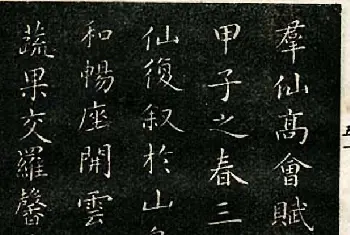 羣仙髙會賦
甲子之春三
仙復叙於山
和暢座開雲
蔬果交羅馨